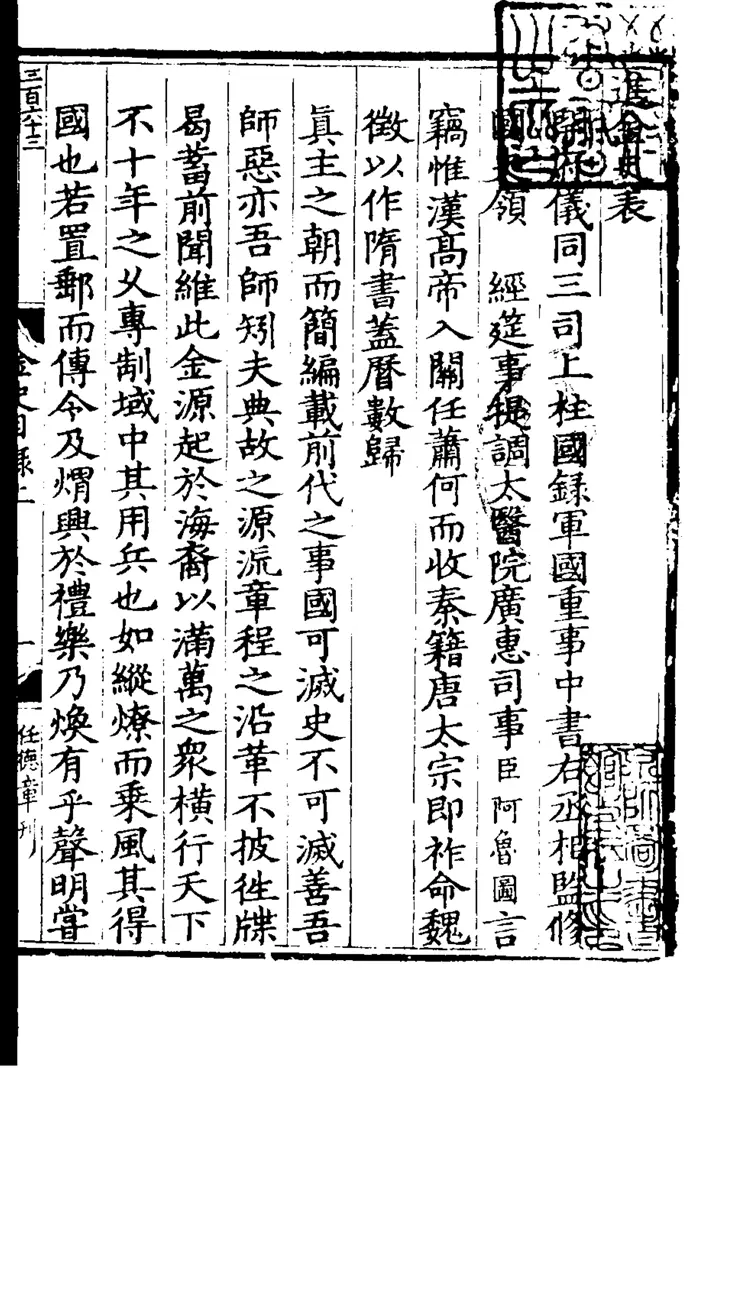 進金史表
開府儀同三司上柱國録軍國重事中書右丞相監修
國史領　經筵事提調太醫院廣惠司事臣阿魯圖言
竊惟漢高帝入關任蕭何而收秦籍唐太宗即祚命魏
徵以作隋書蓋曆數歸
眞主之朝而簡編載前代之事國可滅史不可滅善吾
師惡亦吾師矧夫典故之源流章程之沿革不披徃牒
曷蓄前聞維此金源起於海裔以滿萬之衆橫行天下
不十年之久專制域中其用兵也如縱燎而乘風其得
國也若置郵而傳令及煟興於禮樂乃煥有乎聲明嘗
三百六十三
金史目録上
一
任德章刊